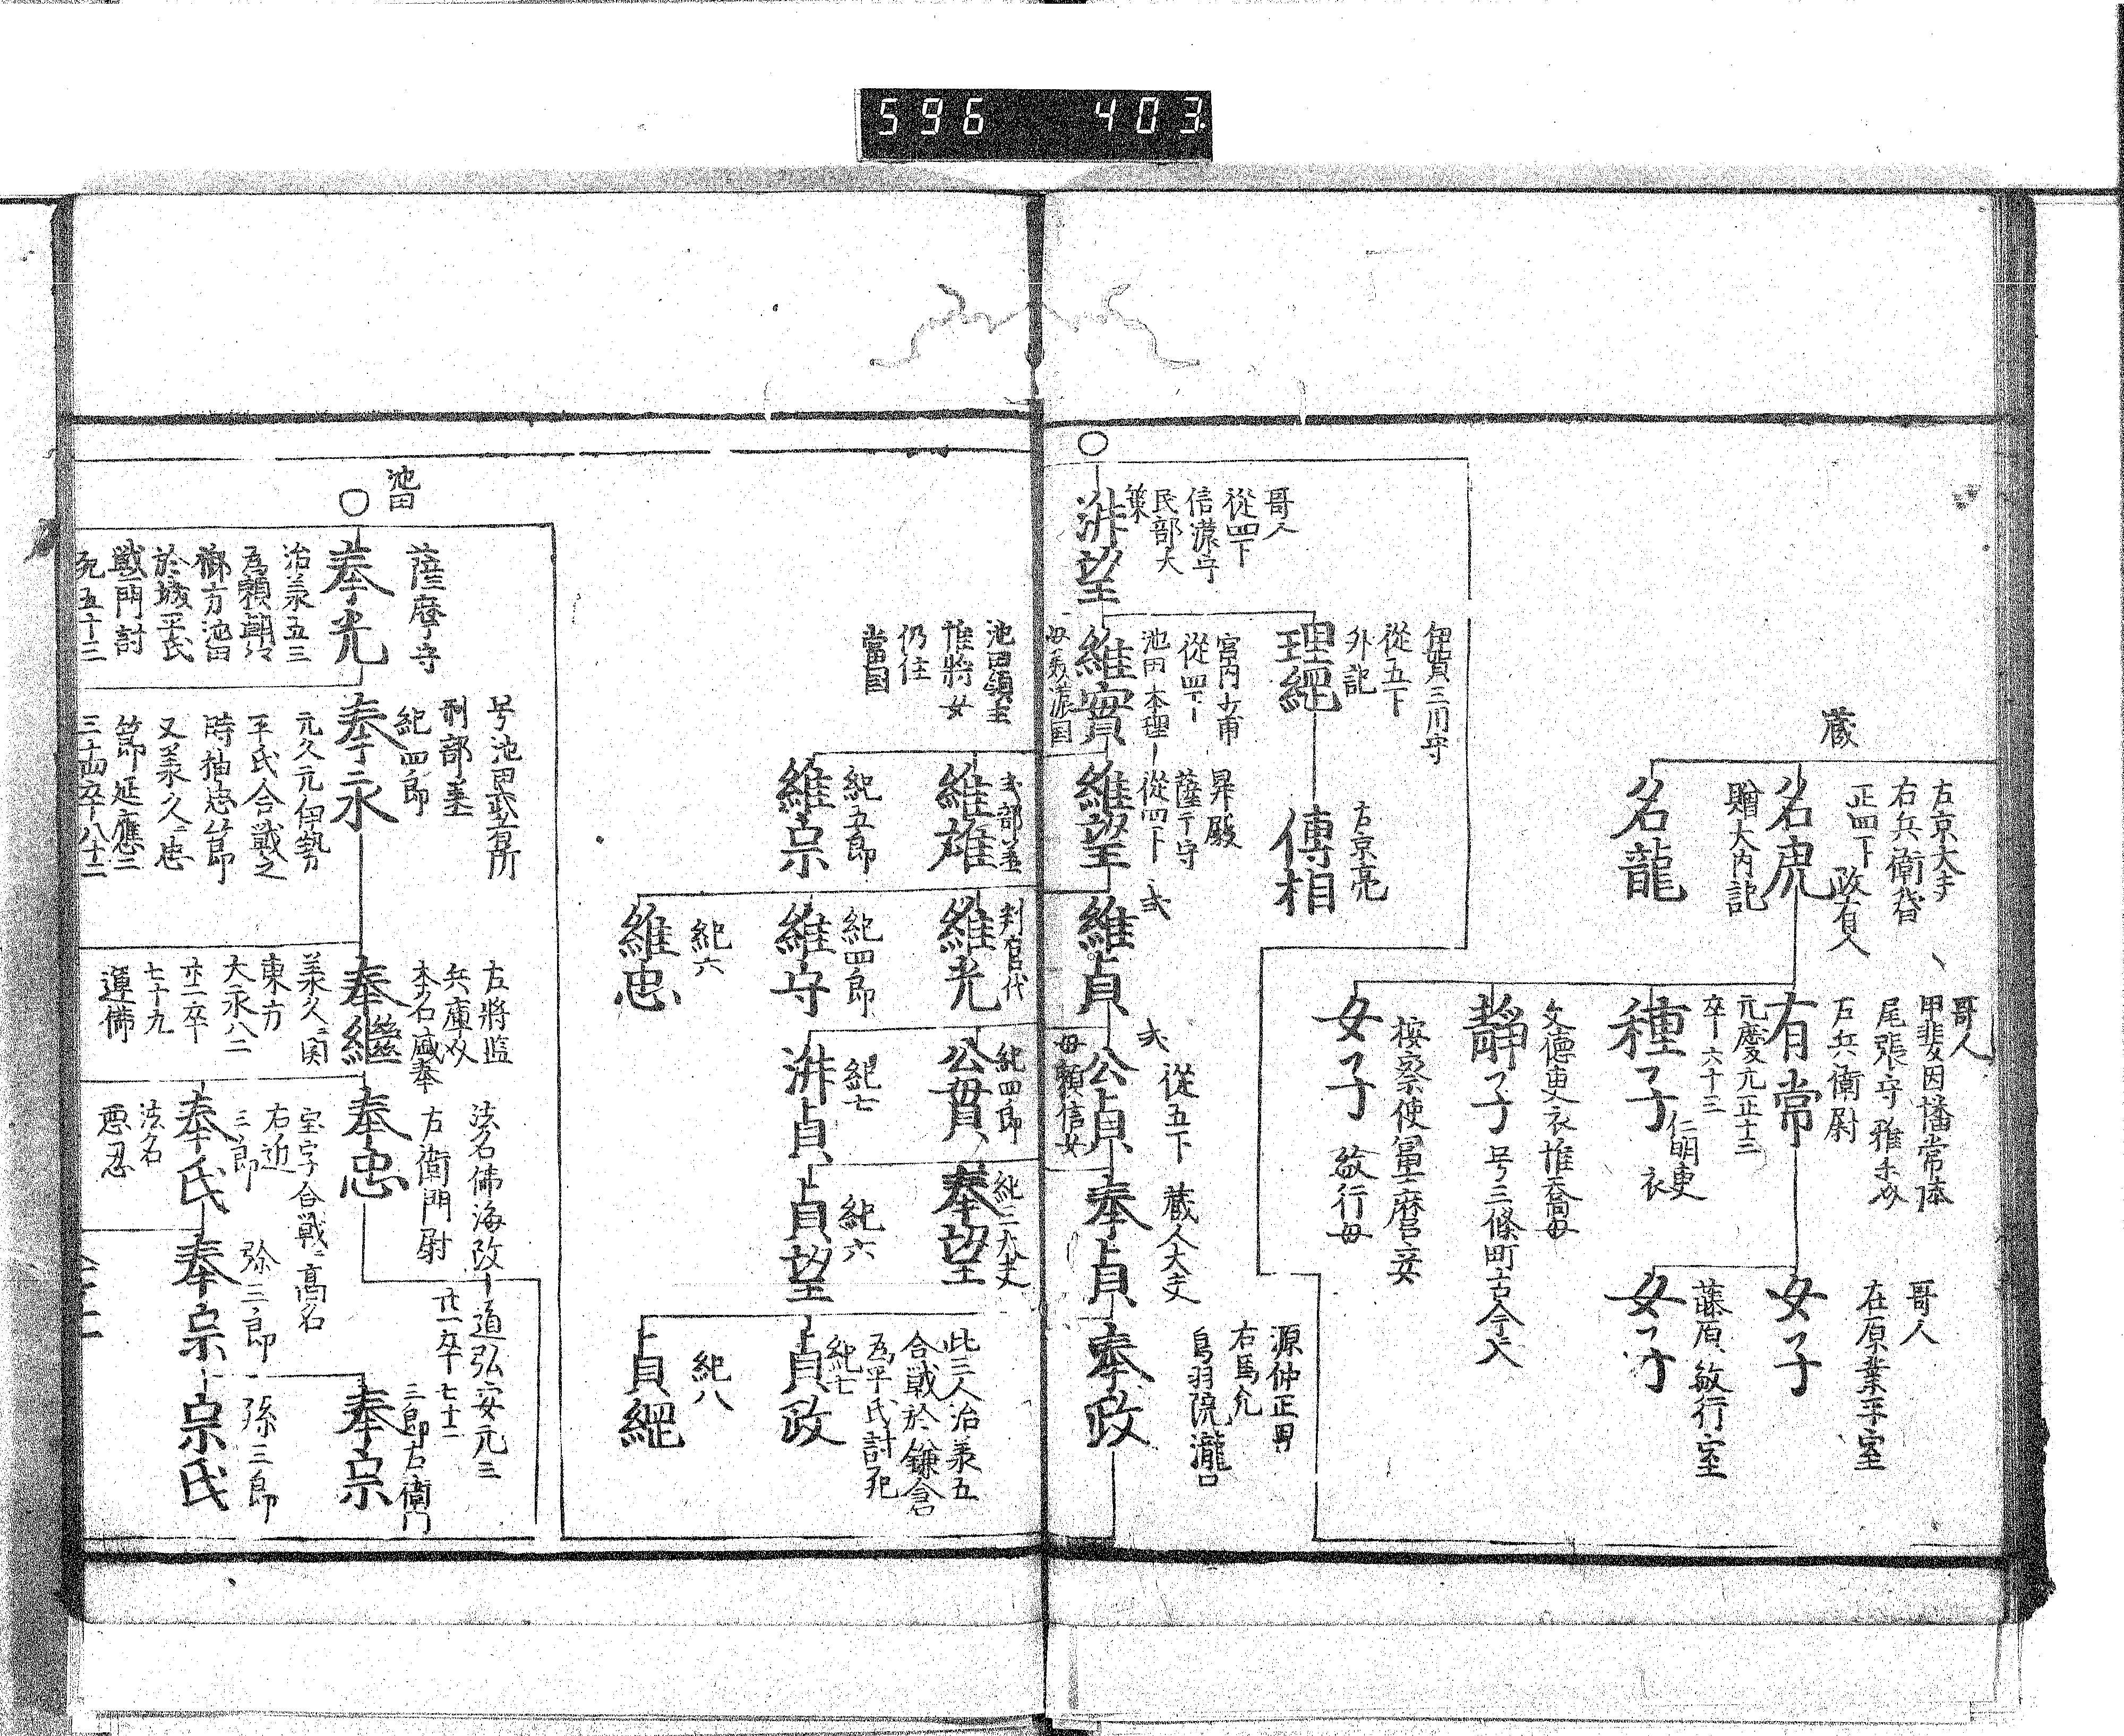 596 403
蔵
左京大夫
右兵衛督
正四下 政有人
名虎
贈大内記
名龍
哥人
甲斐因幡常陸
尾張守 雅
右兵衛尉
有常
元慶元正十三
卒六十三
種子
仁明更
衣
文德更衣惟喬母
靜子 号三條町古今人
按察使
女子 敏行母
哥人
在原業平室
女子
藤原敏行室
女子
伊賀三川守
從五下
外記
理綱
右京亮
傳相
哥人
從四下
信濃守
民部大
淑望
宮内少甫
從四下
維實
母美濃国
昇殿
薩广守
從四下
維望
維貞
從五下
公貞
母頼信女
蔵人大夫
奉貞
源仲正男
右馬允
鳥羽院瀧口
奉政
池田領主
惟將女
仍住
當国
式部
維雄
紀五郎
維宗
判官代
維光
紀四郎
維守
紀六
維忠
紀四郎
公貫
紀七
淑貞
紀三大夫
奉望
紀六
貞望
此三人治美五
合戰於鎌倉
為平氏討死
紀七
貞政
紀八
貞綱
池田
薩摩守
奉光
治美五三
為頼朝
御方池田
於城平氏
戰門討
死五十二
刑部
紀四郎
奉永
元久元伊勢
平氏合戰之
時抽忠節
又美久二忠
節延應二
三十四卒八十二
左將監
兵庫
本名
奉継
美久二関
東方
七十九
蓮佛
法名佛海改
道弘安元三
左衛門尉
卒七十二
奉忠
宝字合戰二高名
右近
三郎
奉氏
法名
三郎左衛門
奉宗
弥三郎
奉宗
孫三郎
宗氏